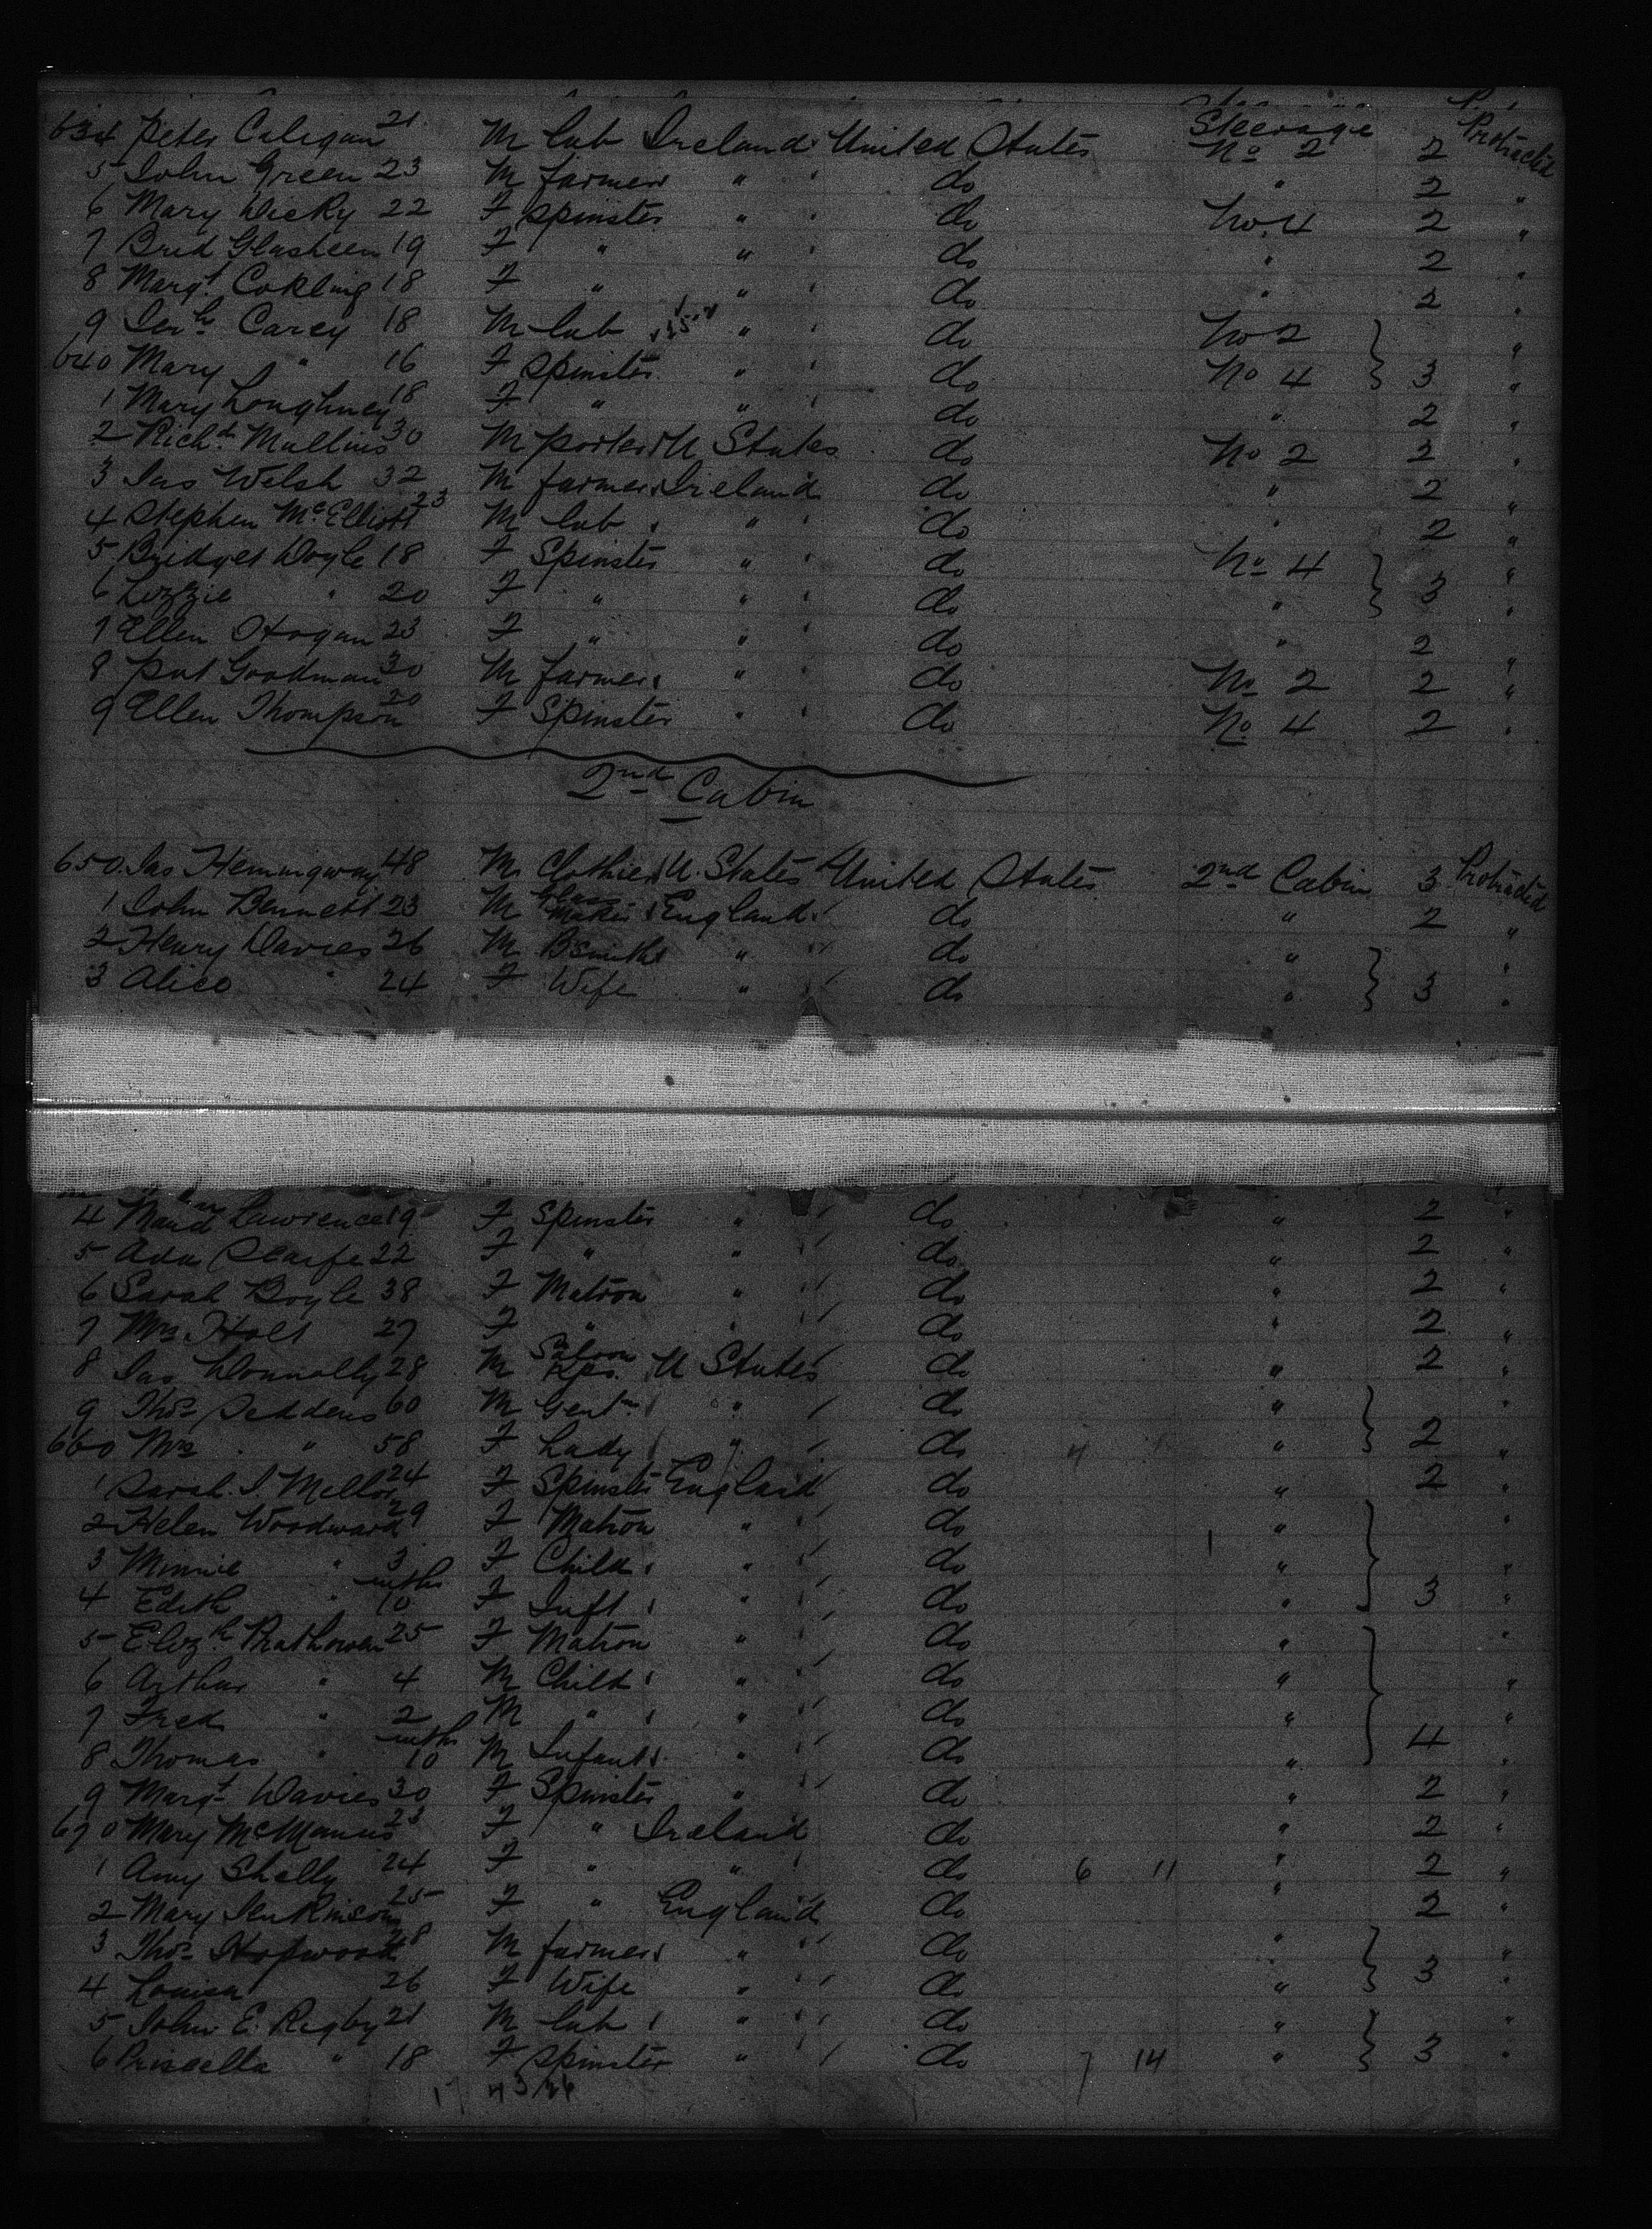 634 Peter Caligan 21 M lab Ireland United States Steerage No 2 2 Protracted
5 John Green 23 M farmer " do " 2 "
6 Mary Dicky 22 F Spinster " do No. 4 2 "
7 Brid Glasheen 19 F " " do " 2 "
8 Margt. Cokling 18 F " " do " 2 "
9 Jerh Carey 18 M lab " do No 2 "
640 Mary " 16 F Spinster " do No 4 3 "
1 Mary Loughney 18 F " " do " 2 "
2 Richd. Mullins 30 M porter U States do No 2 2 "
3 Jas Welsh 32 M farmer Ireland do " 2 "
4 Stephen McElliott 23 M lab " do " 2 "
5 Bridget Doyle 18 F Spinster " do No 4 "
6 Lizzie " 20 F " " do " 3 "
7 Ellen Hogan 23 F " " do " 2 "
8 Pat Goodman 30 M farmer " do No 2 2 "
9 Ellen Thompson 20 F Spinster " do No 4 2 "
2nd Cabin
650 Jas Hemingway 48 M Clothier U. States United States 2nd Cabin 3 Protracted
1 John Bennett 23 M Glass Maker England do " 2 "
2 Henry Davies 26 M Bsmith " do " "
3 Alice " 24 F Wife " do " 3 "
4 Maud Lawrence 19 F Spinster " do " 2 "
5 Ada Scarfe 22 F " " do " 2 "
6 Sarah Boyle 38 F Matron " do " 2 "
7 Mrs Holt 27 F " " do " 2 "
8 Jas Donnolly 28 M Saloon Kpr. U States do " 2 "
9 Thos Seddens 60 M Gentn " do " "
660 Mrs " 58 F Lady " do " 2 "
1 Sarah J. Mellor 24 F Spinster England do " 2 "
2 Helen Woodward 29 F Matron " do " "
3 Minnie " 3 F Child " do " "
4 Edith " mths 10 F Inft " do " 3 "
5 Elizh. 25 F Matron " do " "
6 Arthur " 4 M Child " do " "
7 Fred " 2 M " " do " "
8 Thomas " mths 10 M Infant " do " 4 "
9 Margt. Davies 30 F Spinster " do " 2 "
670 Mary McManus 23 F " Ireland do " 2 "
1 Amy Shelly 24 F " " do 6 11 " 2 "
2 Mary Jenkinson 25 F " England do " 2 "
3 Thos Hopwood 28 M farmer " do " "
4 Louisa 26 F Wife " do " 3 "
5 John E. Rigby 21 M lab " do " "
6 Priscella " 18 F Spinster " do 7 14 " 3 "